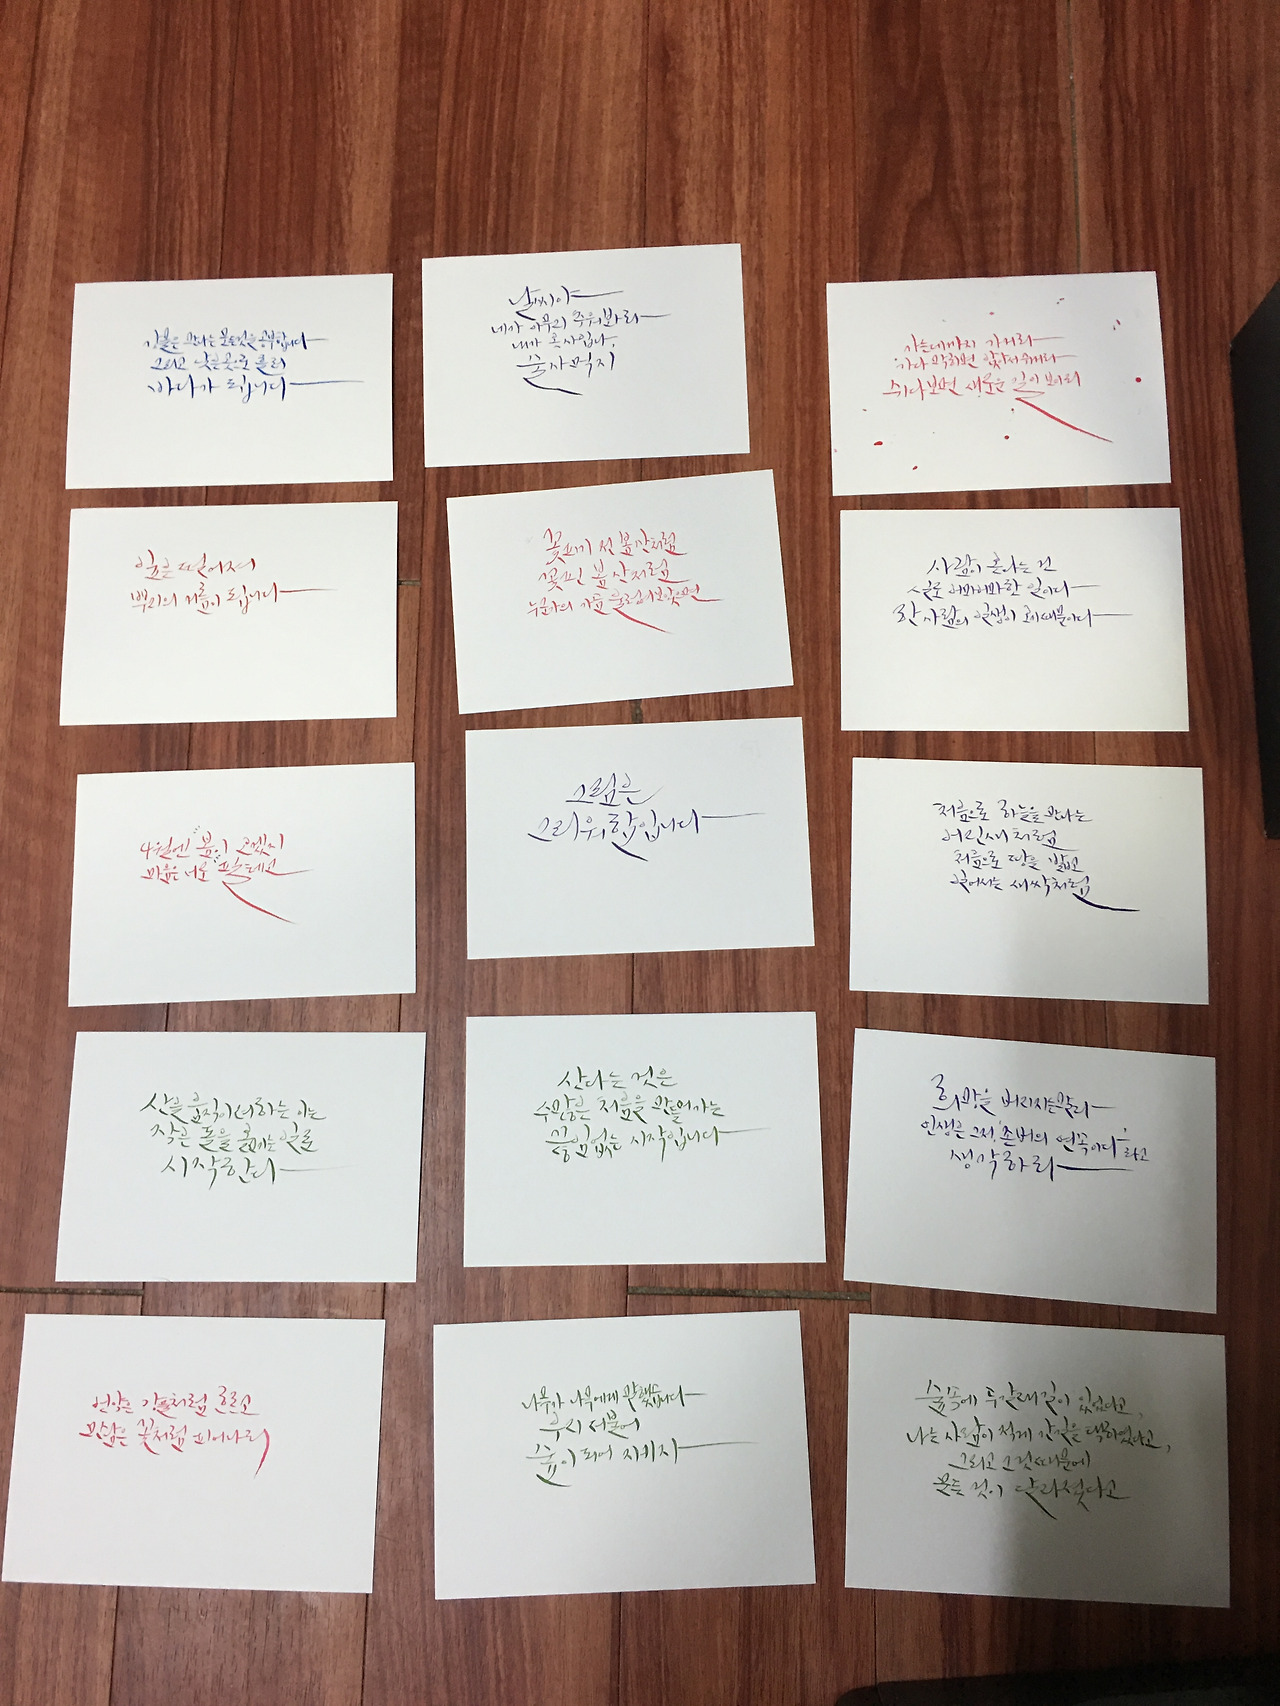 강물은 만나는 모든것을 공부합니다
그리고 낮은곳으로 흘러
바다가 됩니다
날씨야
네가 아무리 추워봐라
내가 옷 사입나,
술 사먹지
가는데까지 가거라
가다 막히면 앉아서 쉬거라
쉬다보면 새로운 길이 보이리
잎은 떨어져
뿌리의 거름이 됩니다
꽃피기 전 봄산처럼
꽃핀 봄산처럼
누군가의 가슴 울렁여보았으면
사람이 온다는 건
실로 어마어마한 일이다
한 사람의 일생이 오기때문이다
4월엔 봄이 오겠지
마음은 너로
그림은
그리워함입니다
처음으로 하늘을 만나는
어린새처럼
처음으로 땅을 밟고
일어서는 새싹처럼
산을 움직이려하는 이는
작은 돌을 옮기는 일로
시작한다
산다는 것은
수많은 처음을 만들어가는
끊임없는 시작입니다
희망을 버리지는말라
인생은 그저, '존버의 연속이다' 라고
생각하라
언약은 강물처럼 흐르고
만남은 꽃처럼 피어나리
나무가 나무에게 말했습니다
우리 더불어
숲이 되어 지키자
숲속에 두갈래길이 있었다고,
나는 사람이 적게 간길을 택하였다고,
그리고 그것때문에
모든 것이 달라졌다고